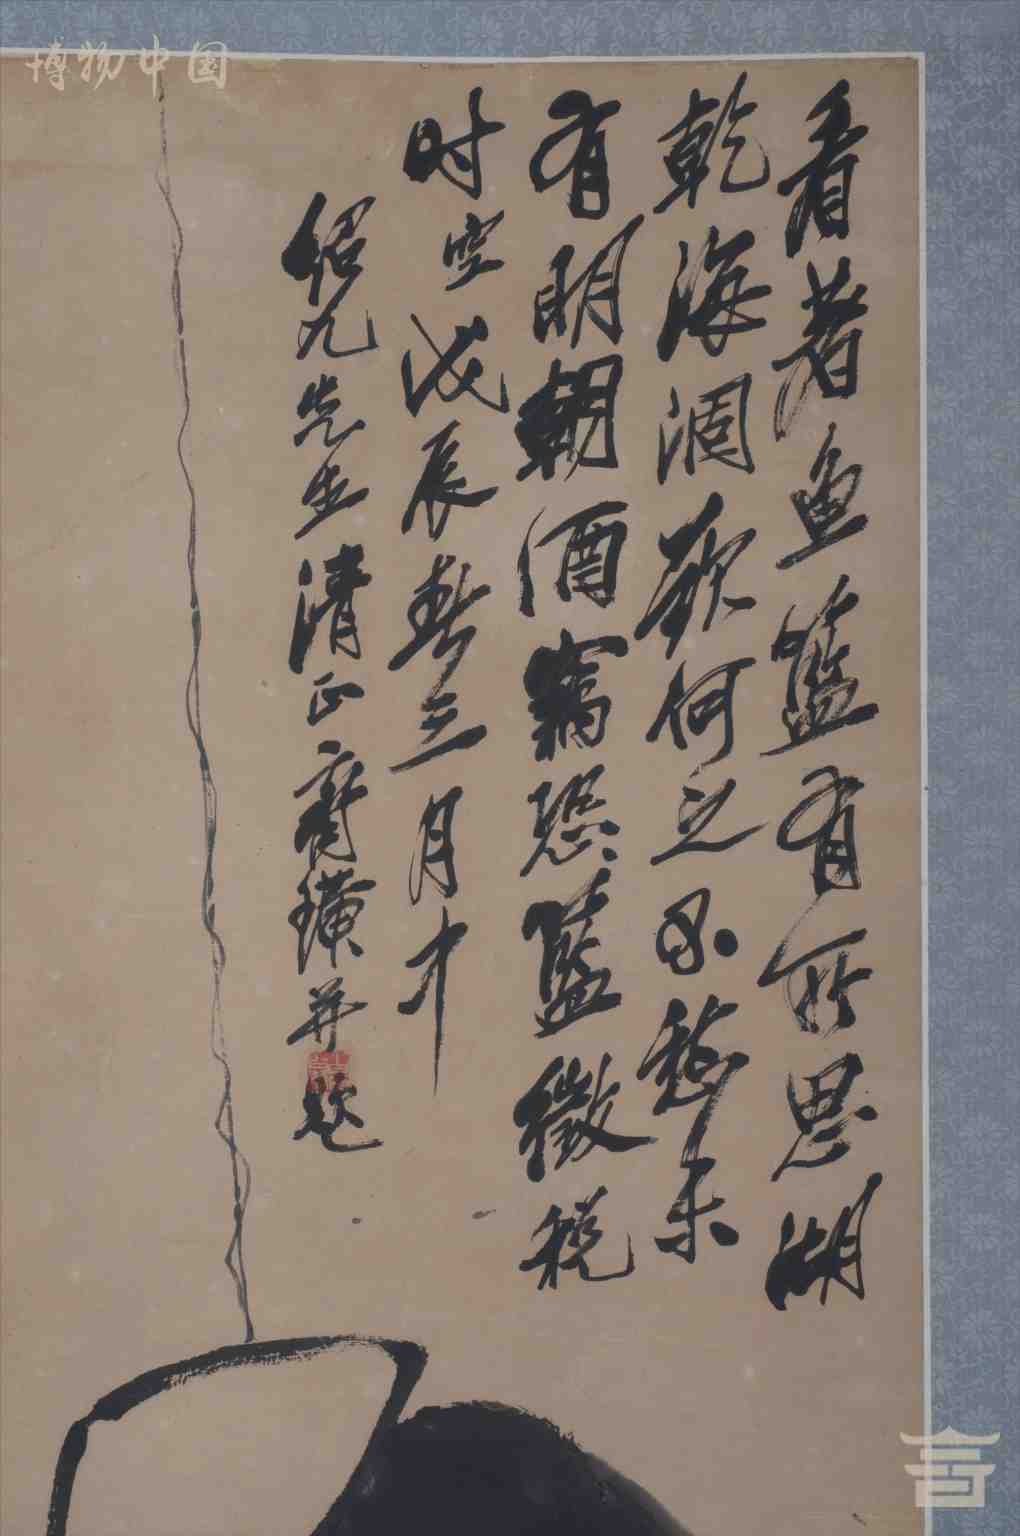 博物中国
看著鱼籃有所思湖
乾海涸欲何之不愁未
有明朝酒竊恐籃徵税
时空戊辰春三月中
紹九先生清正齊璜并题